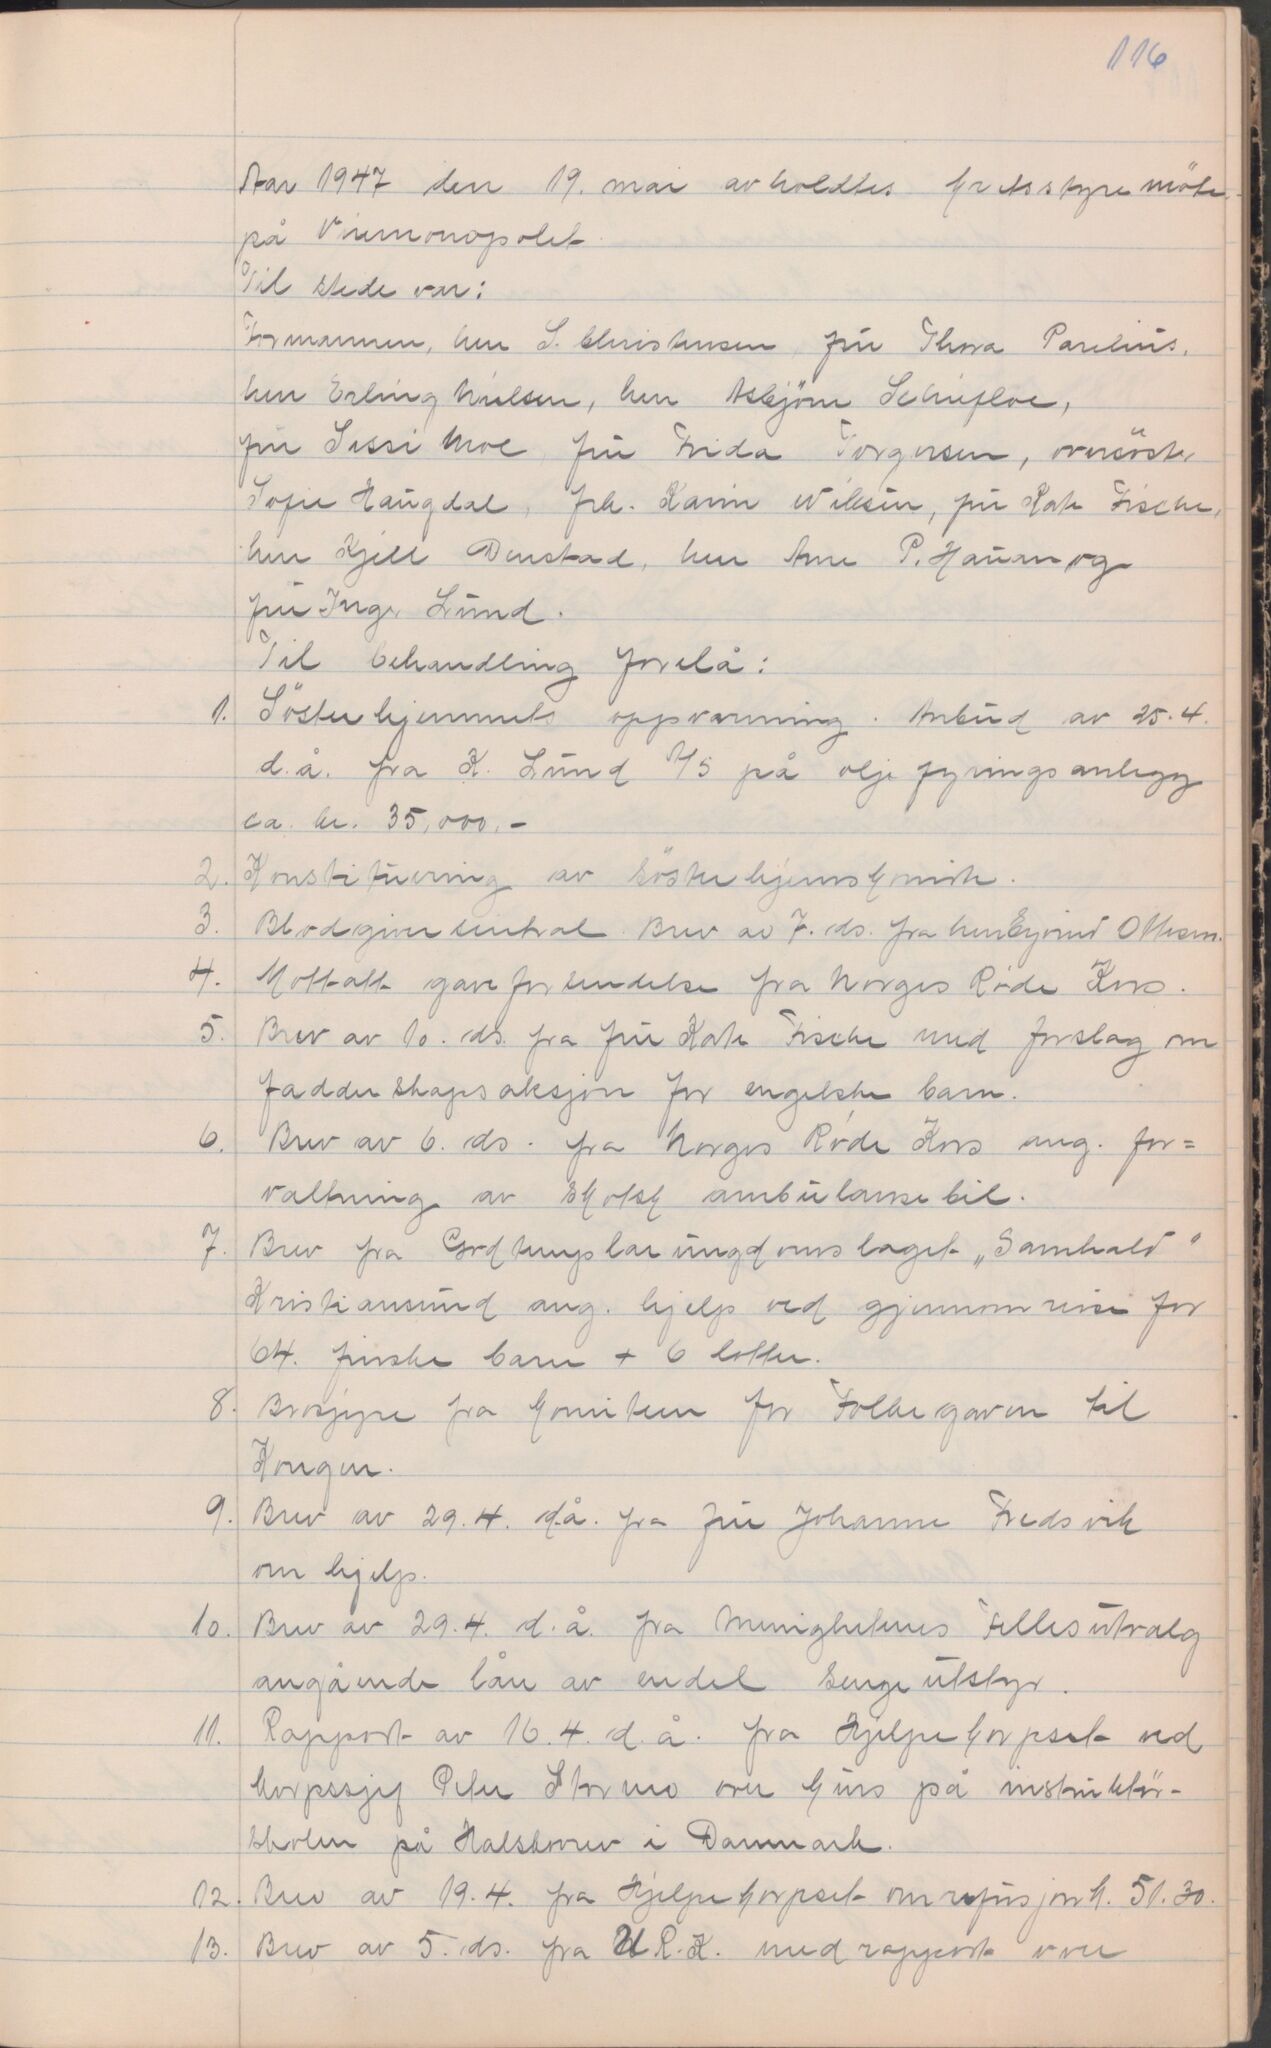 116
Aar 1947 den 19. mai avholdtes kretsstyremöte
på Vinmonopolet.
Til stede var:
Formannen, herr S. Christensen, fru Thora Parelius,
herr Erling Nielsen, herr Asbjörn Schiefloe,
fru Sissi Moe, fru Frida Torgersen, oversöster
Sofie Haugdal, frk. Karin Nilsen, fru Kate Fischer,
herr Kjell Denstad, herr Arne P. Hauan og
fru Inger Lund.
Til behandling forelå:
1. Sösterhjemmets oppvarming. Anbud av 25.4.
d.å. fra K. Lund A/S på oljefyringsanlegg
ca. kr. 35,000.-
2. Konstituering av sösterhjemskomite.
3. Blodgiversentral. Brev av 7. ds. fra herr Eyvind Ottesen.
4. Mottatt gaveforsendelse fra Norges Røde Kors.
5. Brev av 10. ds. fra fru Kate Fischer med forslag om
fadderskapsaksjon for engelske barn.
6. Brev av 6. ds. fra Norges Røde Kors ang. for=
valtning av skotsk ambulansebil.
7. Brev fra Godtemplarungdomslaget „Samhald"
Kristiansund ang. hjelp ved gjennomreise for
64. finske barn + 6 lotter.
8. Brosjyre fra komiteen for Folkegaven til
Kongen.
9. Brev av 29.4. d.å. fra fru Johanne Fredsvik
om hjelp.
10. Brev av 29.4. d.å. fra Menighetenes Fellesutvalg
angående lån av endel sengeutstyr.
11. Rapport av 16.4. d.å. fra Hjelpekorpset ved
korpssjef Peter Stormo over kurs på instruktör-
skolen på Halskovrev i Danmark.
12. Brev av 19.4. fra Hjelpekorpset om refusjon k. 51.30.
13. Brev av 5. ds. fra U.R.K. med rapport over